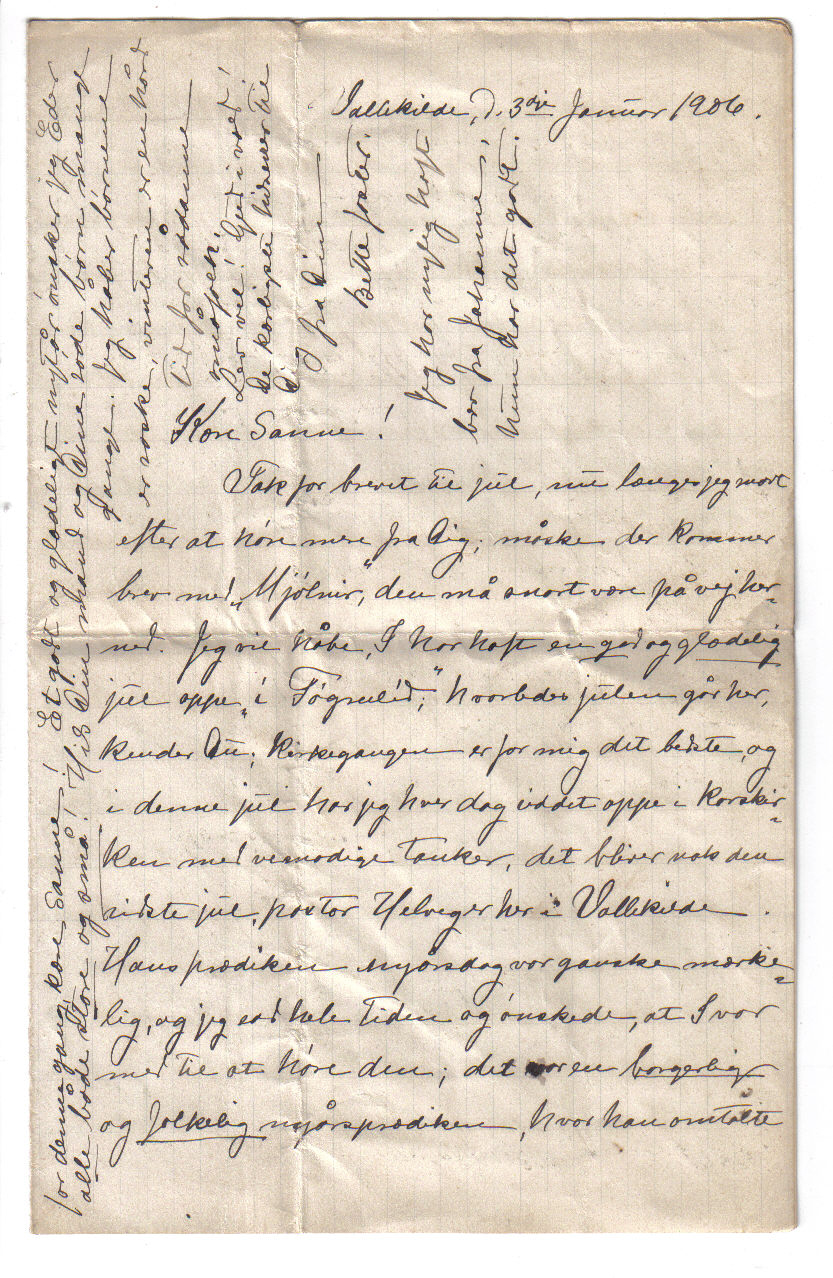 Vallekilde, d. 3die Januar 1906.
Kære Sanne!
Tak for brevet til jul, nu længes jeg snart
efter at höre mere fra Dig; måske der kommer
brev med „Mjölnir“, den må snart være på vej her-
ned. Jeg vil håbe, I har haft en god og glædelig
jul oppe „í Tógvulíð;“ hvorledes julen går her,
kender Du; kirkegangen er for mig det bedste, og
i denne jul har jeg hver dag siddet oppe i Korskir-
ken med vemodige tanker, det bliver nok den
sidste jul, pastor Helveg er her i Vallekilde.
Hans prædiken nyårsdag var ganske mærke-
lig, og jeg sad hele tiden og önskede, at I var
med til at höre den; det var en borgerlig
og folkelig nyårsprædiken, hvor han omtalte
for denne gang, kære Sanne! Et godt og glædeligt nytår önsker jeg Eder
alle både store og små! Hils Din mand og Dine söde börn mange
gange. Jeg håber börnene
er raske, vinteren er en hård
tid for sådanne
småfolk.
Lev vel! Gud i vold!
De kærligste hilsener til
Dig fra Din
Bette faster.
Jeg har nylig haft
brev fra Johanne,
hun har det godt.